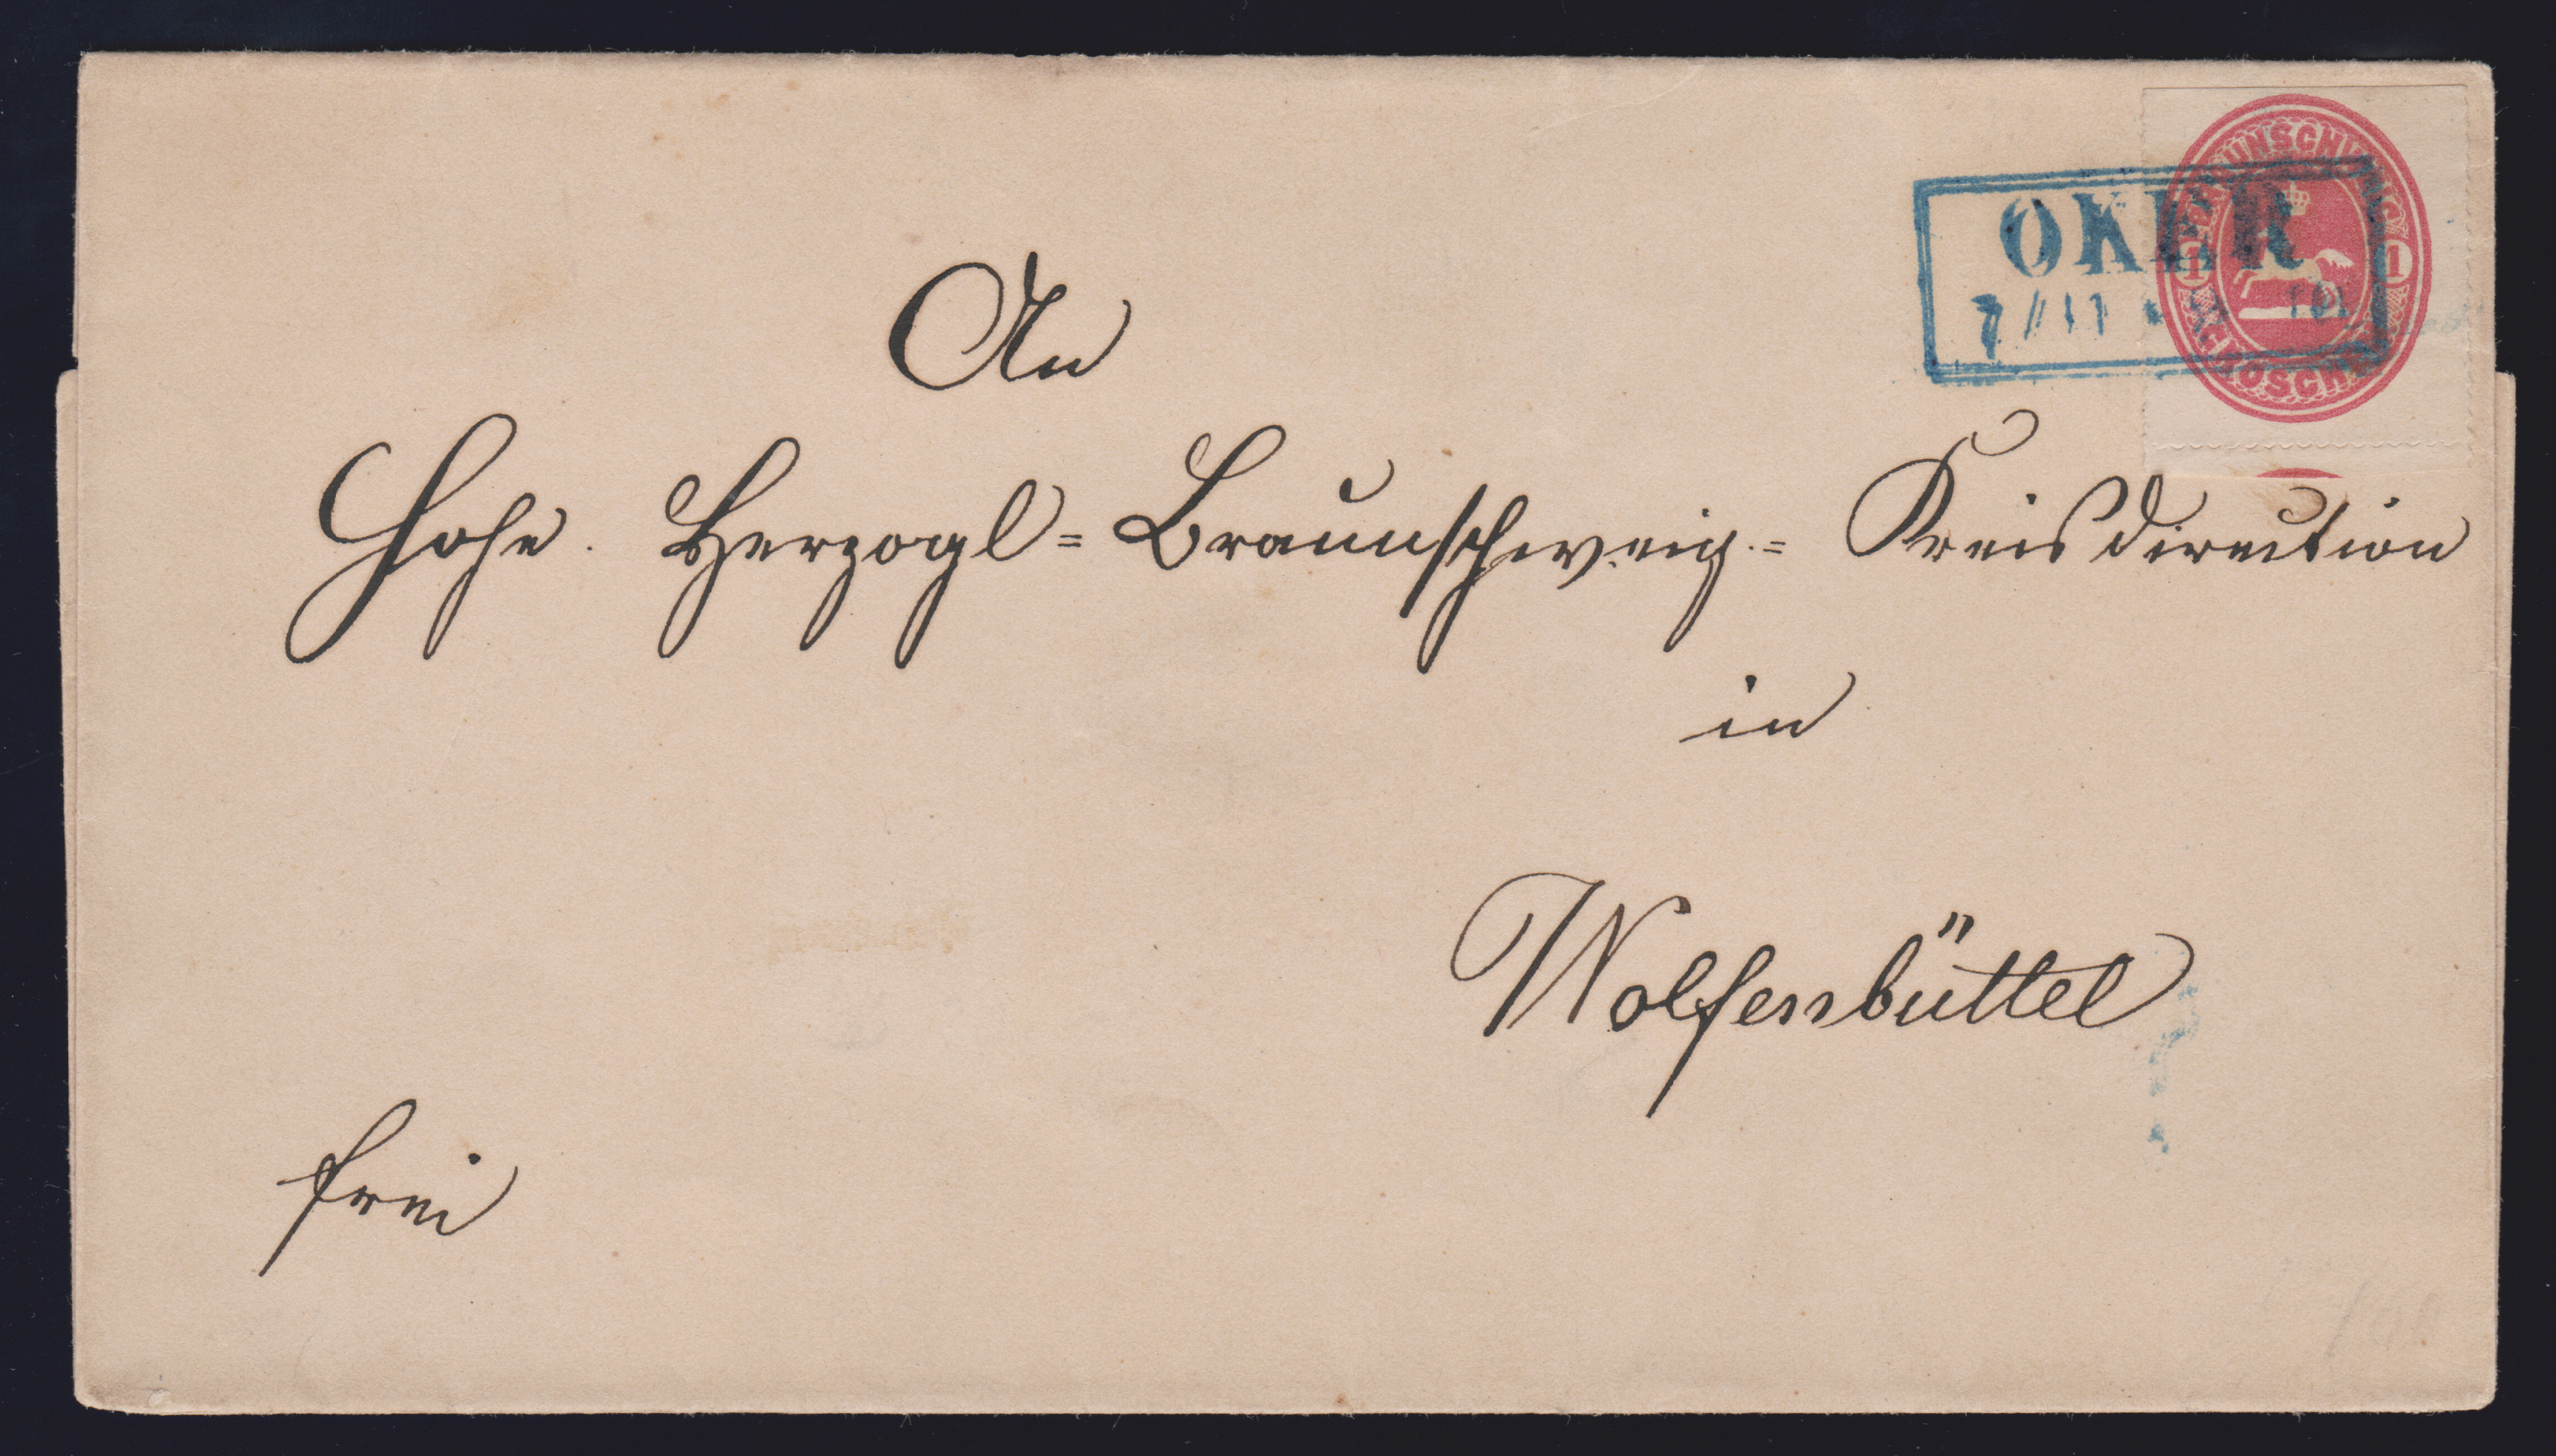 BRAUNSCHWEIG
1 1
GROSCHEN
OKER
7/11
An
Hohe Herzogl= Braunschweig.= Kreisdirection
in
Wolfenbüttel
frei